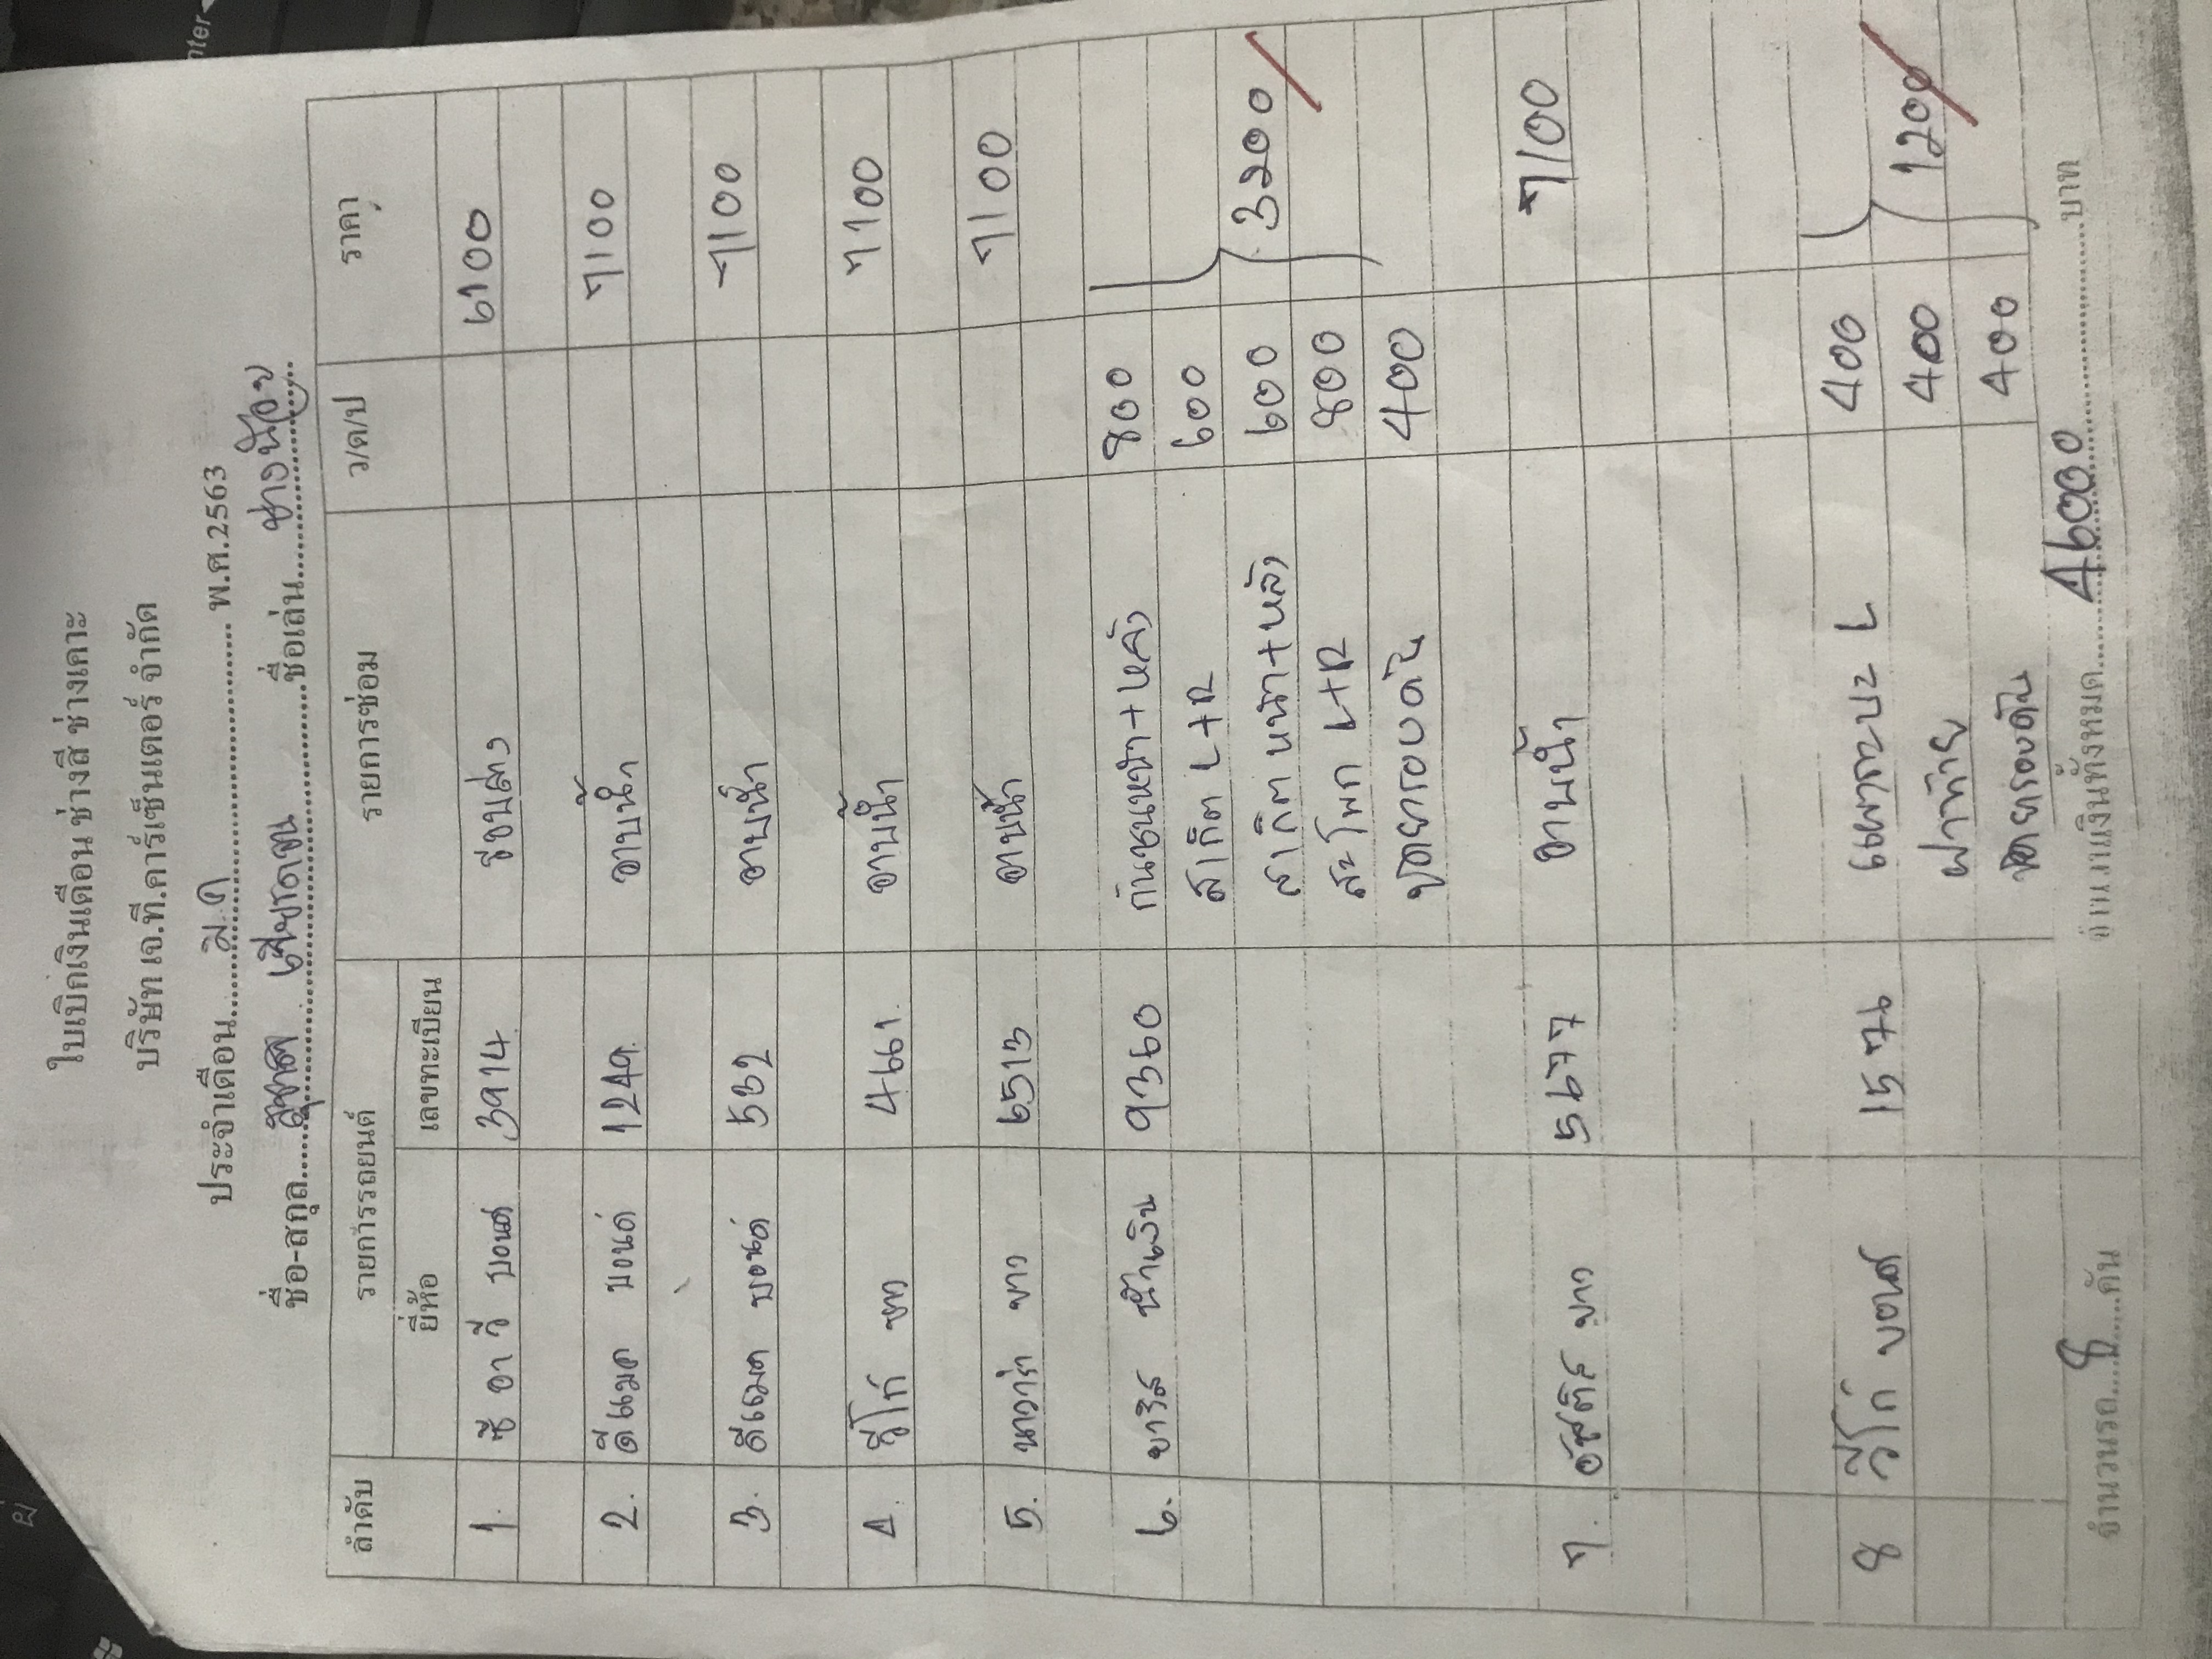 ใบเบิกเงินเดือน ช่างสี ช่างเคาะ
บริษัท เจ.ที.คาร์เซ็นเตอร์ จำกัด
ประจำเดือน......ม.ค......... พ.ศ.2563
ชื่อ-สกุล.................ชื่อเล่น......ช่างน้อย
ลำดับ รายการรถยนต์ รายการซ่อม ว/ด/ป ราคา
ยี่ห้อ เลขทะเบียน
1. ซี อา วี บอนด์ 3914 6100
2. ดีแมค บอนด์ 1249 อาบน้ำ 7100
3. ดีแมค บอนด์ 532 อาบน้ำ 7100
4. วีโก้ ขาว 4661 อาบน้ำ 7100
5. นาวาร่า ขาว 6513 อาบน้ำ 7100
6. ยาริส น้ำเงิน 9360 กันชนหน้า+หลัง 800
สเกิต L+R 600
หน้า+หลัง 600 3200
สะโพก L+R 800
400
7. ขาว 5677 อาบน้ำ 7100
8 วีโก้ บอนด์ 1576 L 400
ฝาท้าย 400 1200
400
จำนวนรถ....8....คัน จำนวนเงินทั้งหมด......46000......บาท